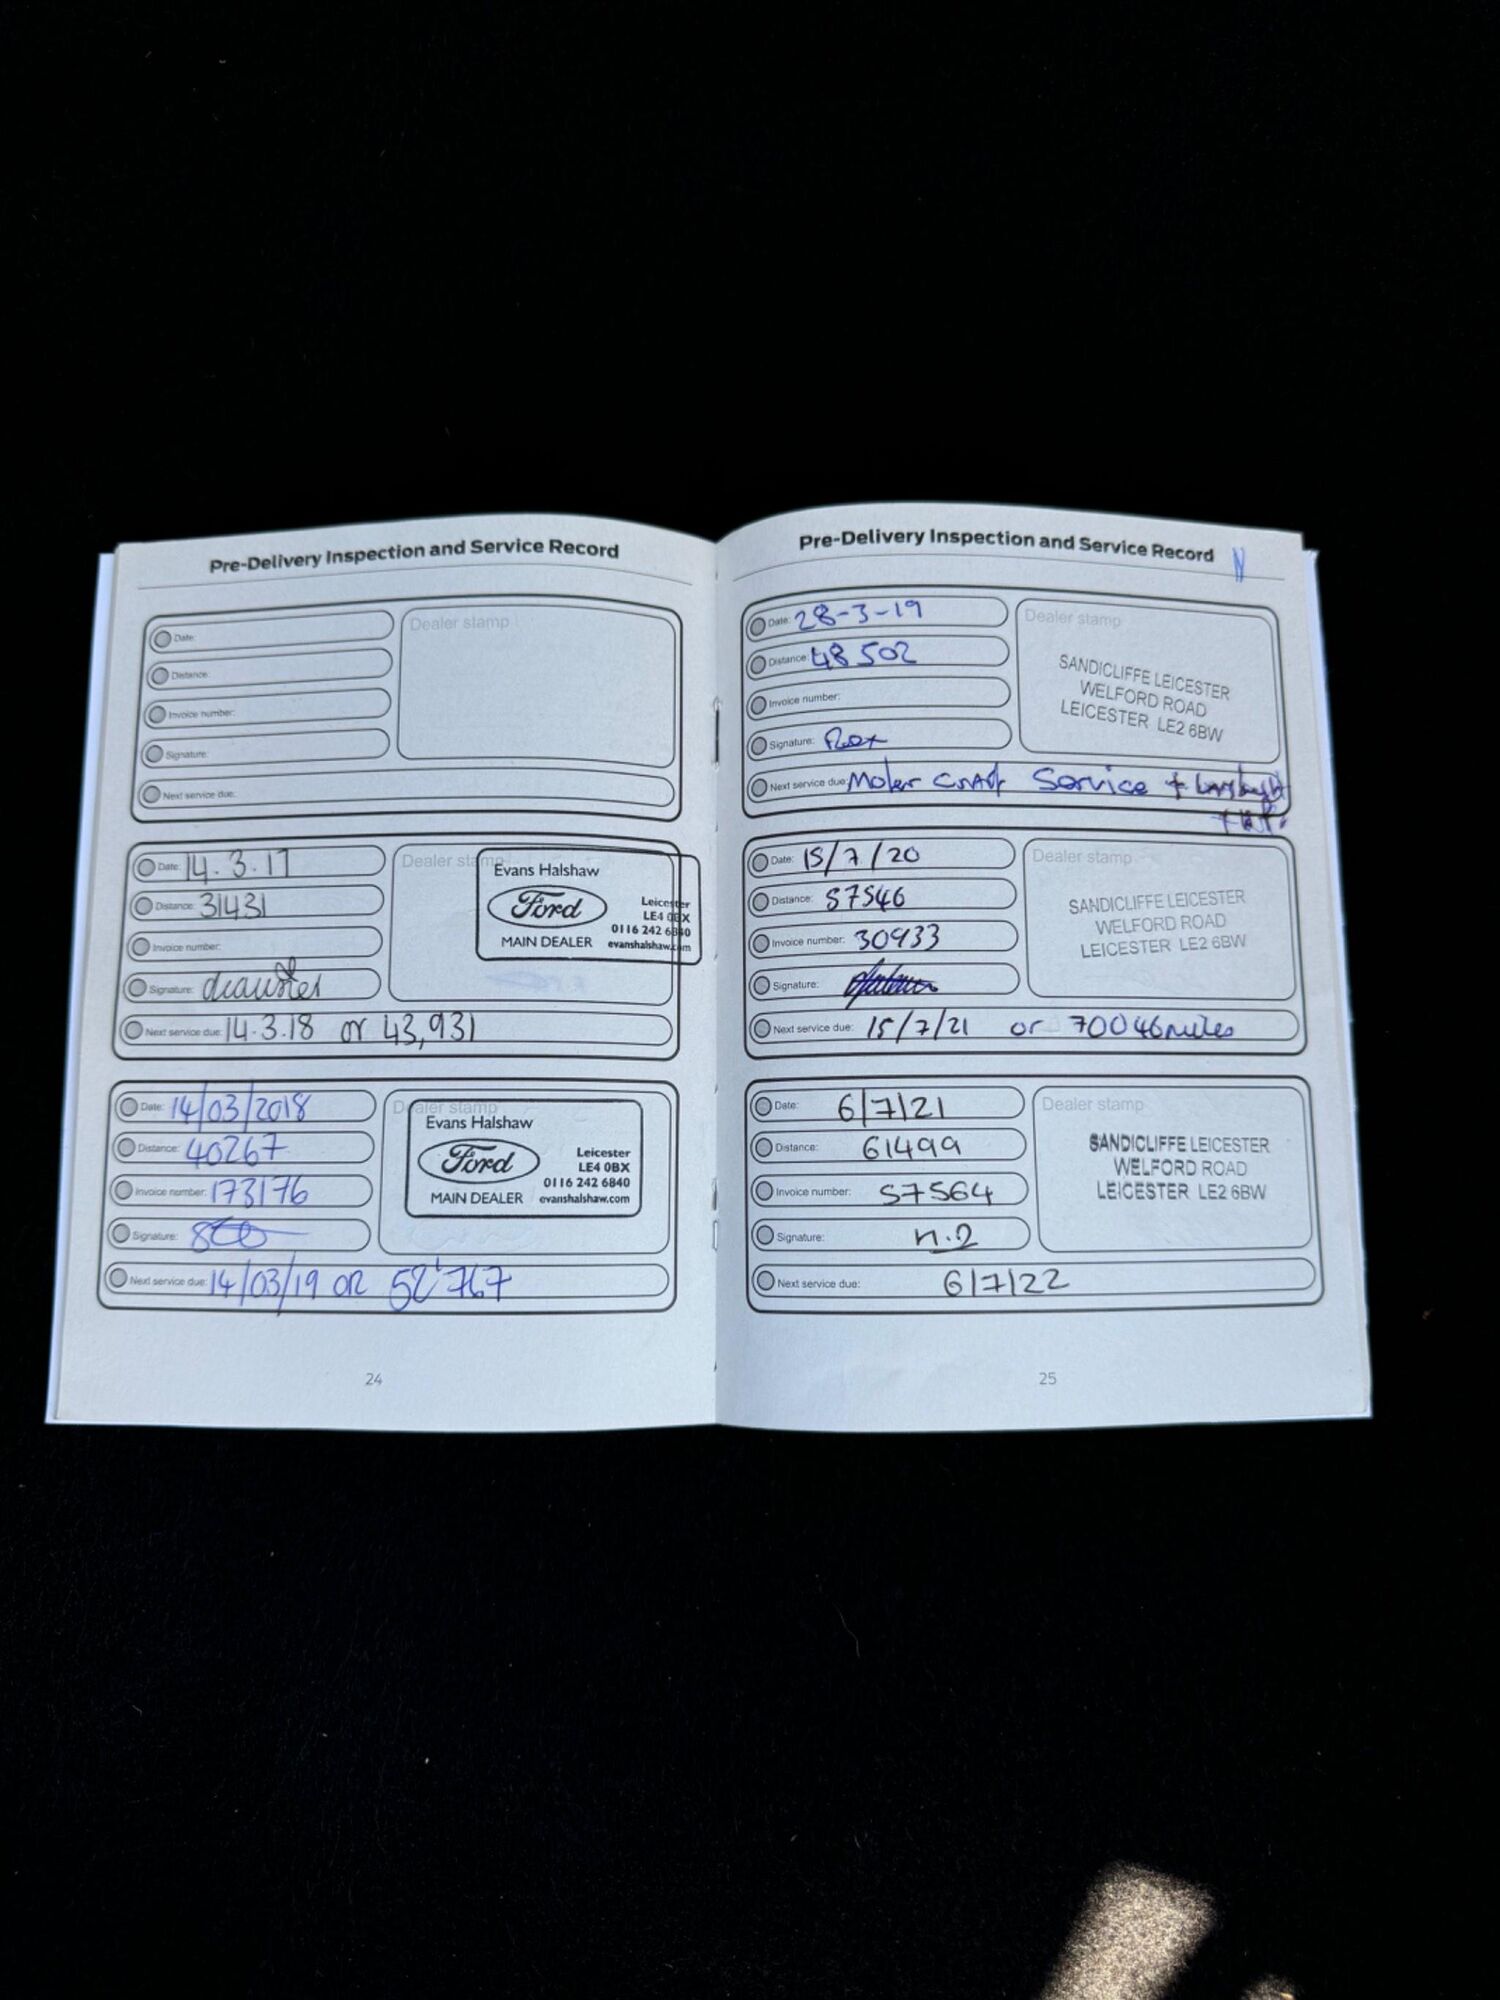 Pre-Delivery Inspection and Service Record
Date:
Dealer stamp
Distance:
Invoice number:
Signature:
Next service due:
Date: 14.3.17
Dealer stamp
Evans Halshaw
Ford
MAIN DEALER
Leicester
LE4 0BX
0116 242 6840
evanshalshaw.com
Distance: 31431
Invoice number:
Signature:
Next service due: 14.3.18 or 43,931
Date: 14/03/2018
Dealer stamp
Evans Halshaw
Ford
MAIN DEALER
Leicester
LE4 0BX
0116 242 6840
evanshalshaw.com
Distance: 40267
Invoice number: 173176
Signature:
Next service due: 14/03/19 OR 52'767
24
Pre-Delivery Inspection and Service Record
Date: 28-3-19
Dealer stamp
SANDICLIFFE LEICESTER
WELFORD ROAD
LEICESTER LE2 6BW
Distance: 48502
Invoice number:
Signature:
Next service due: Motor Craft Service +
Date: 15/7/20
Dealer stamp
SANDICLIFFE LEICESTER
WELFORD ROAD
LEICESTER LE2 6BW
Distance: 57546
Invoice number: 30933
Signature:
Next service due: 15/7/21 or 70046 miles
Date: 6/7/21
Dealer stamp
SANDICLIFFE LEICESTER
WELFORD ROAD
LEICESTER LE2 6BW
Distance: 61499
Invoice number: 57564
Signature: n.2
Next service due: 6/7/22
25